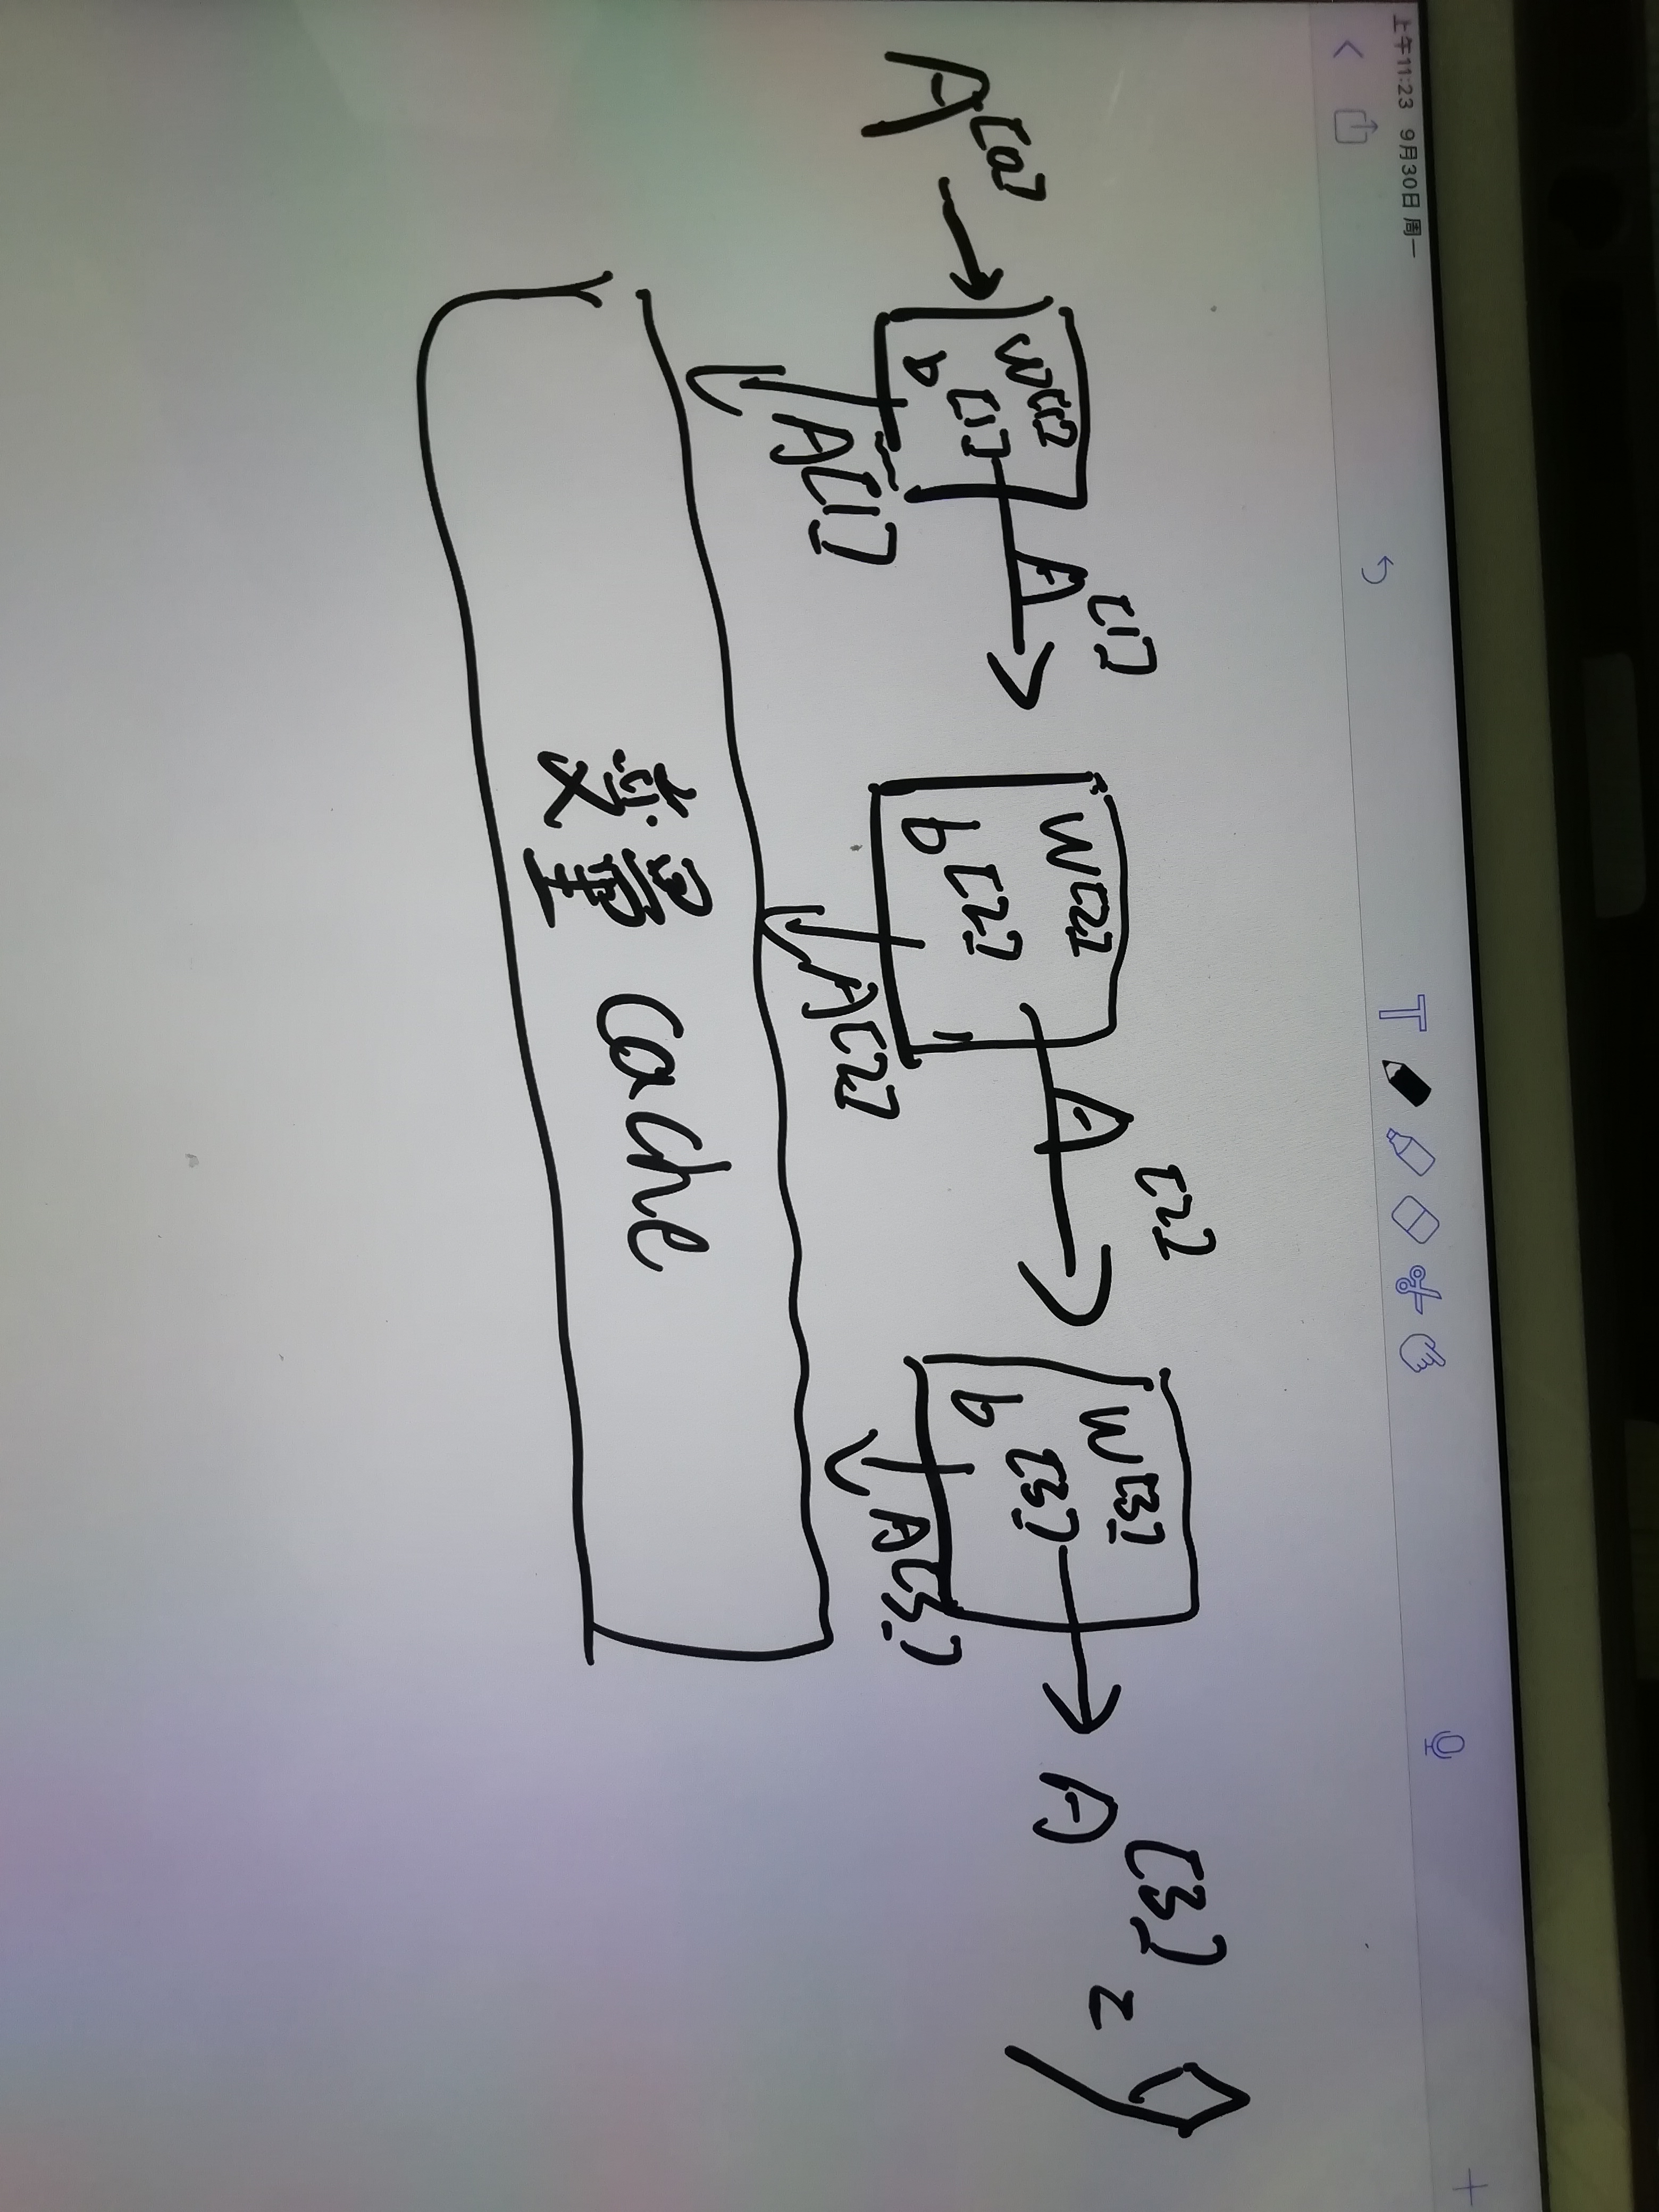 上午11:23 9月30日 周一
T
A[0] W[1] b[1] A[1] W[2] b[2] A[2] W[3] b[3] A[3] = ŷ
A[1] A[2] A[3]
变量 cache